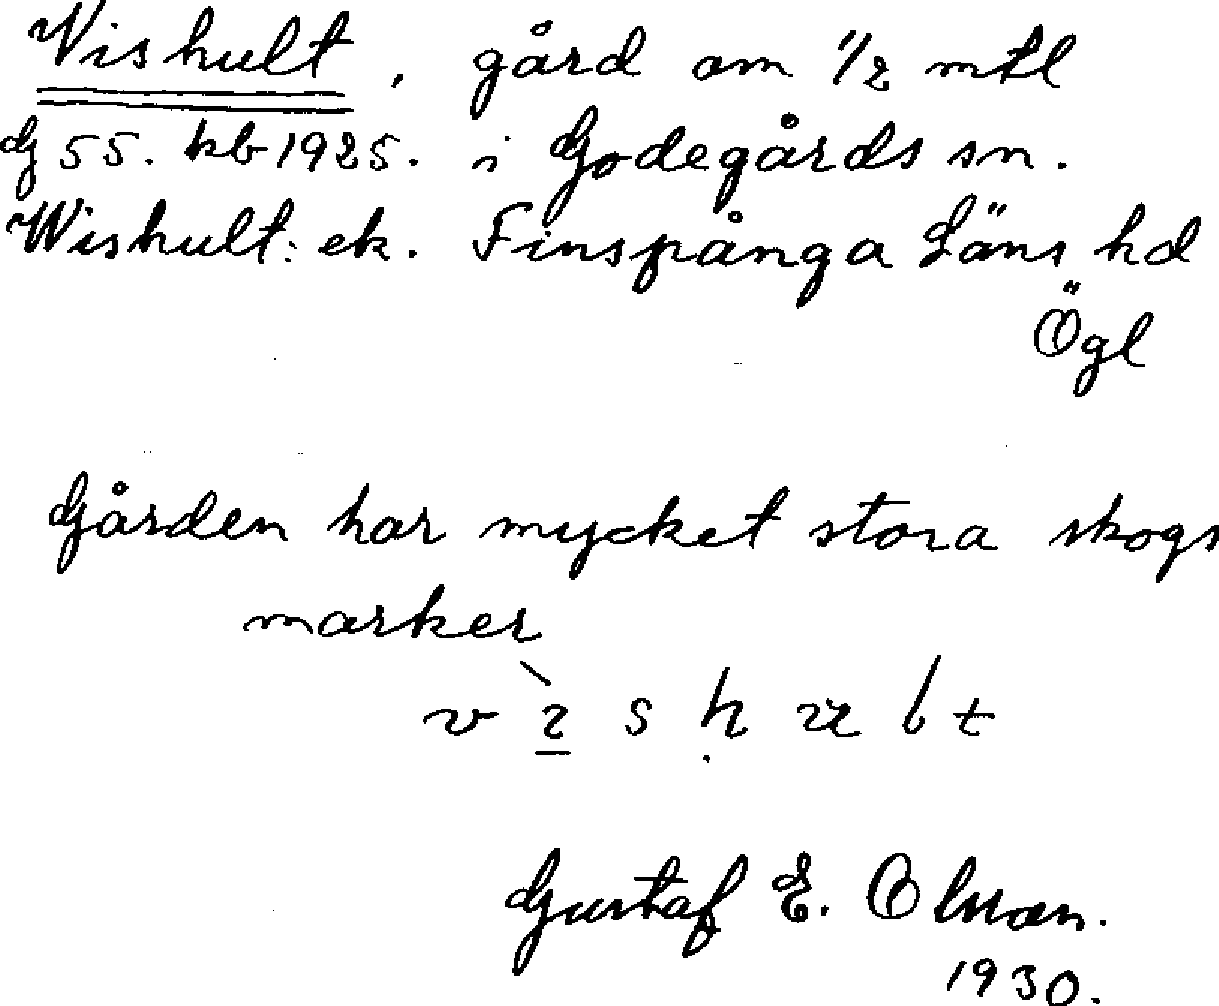 Vishult, gård om 1/2 mtl
G 55. kb 1925. i Godegårds sn.
Wishult: ek. Finspånga Läns hd
Ögl
Gården har mycket stora skogs
marker
v ì s h u l t
Gustaf E. Olsson.
1930.